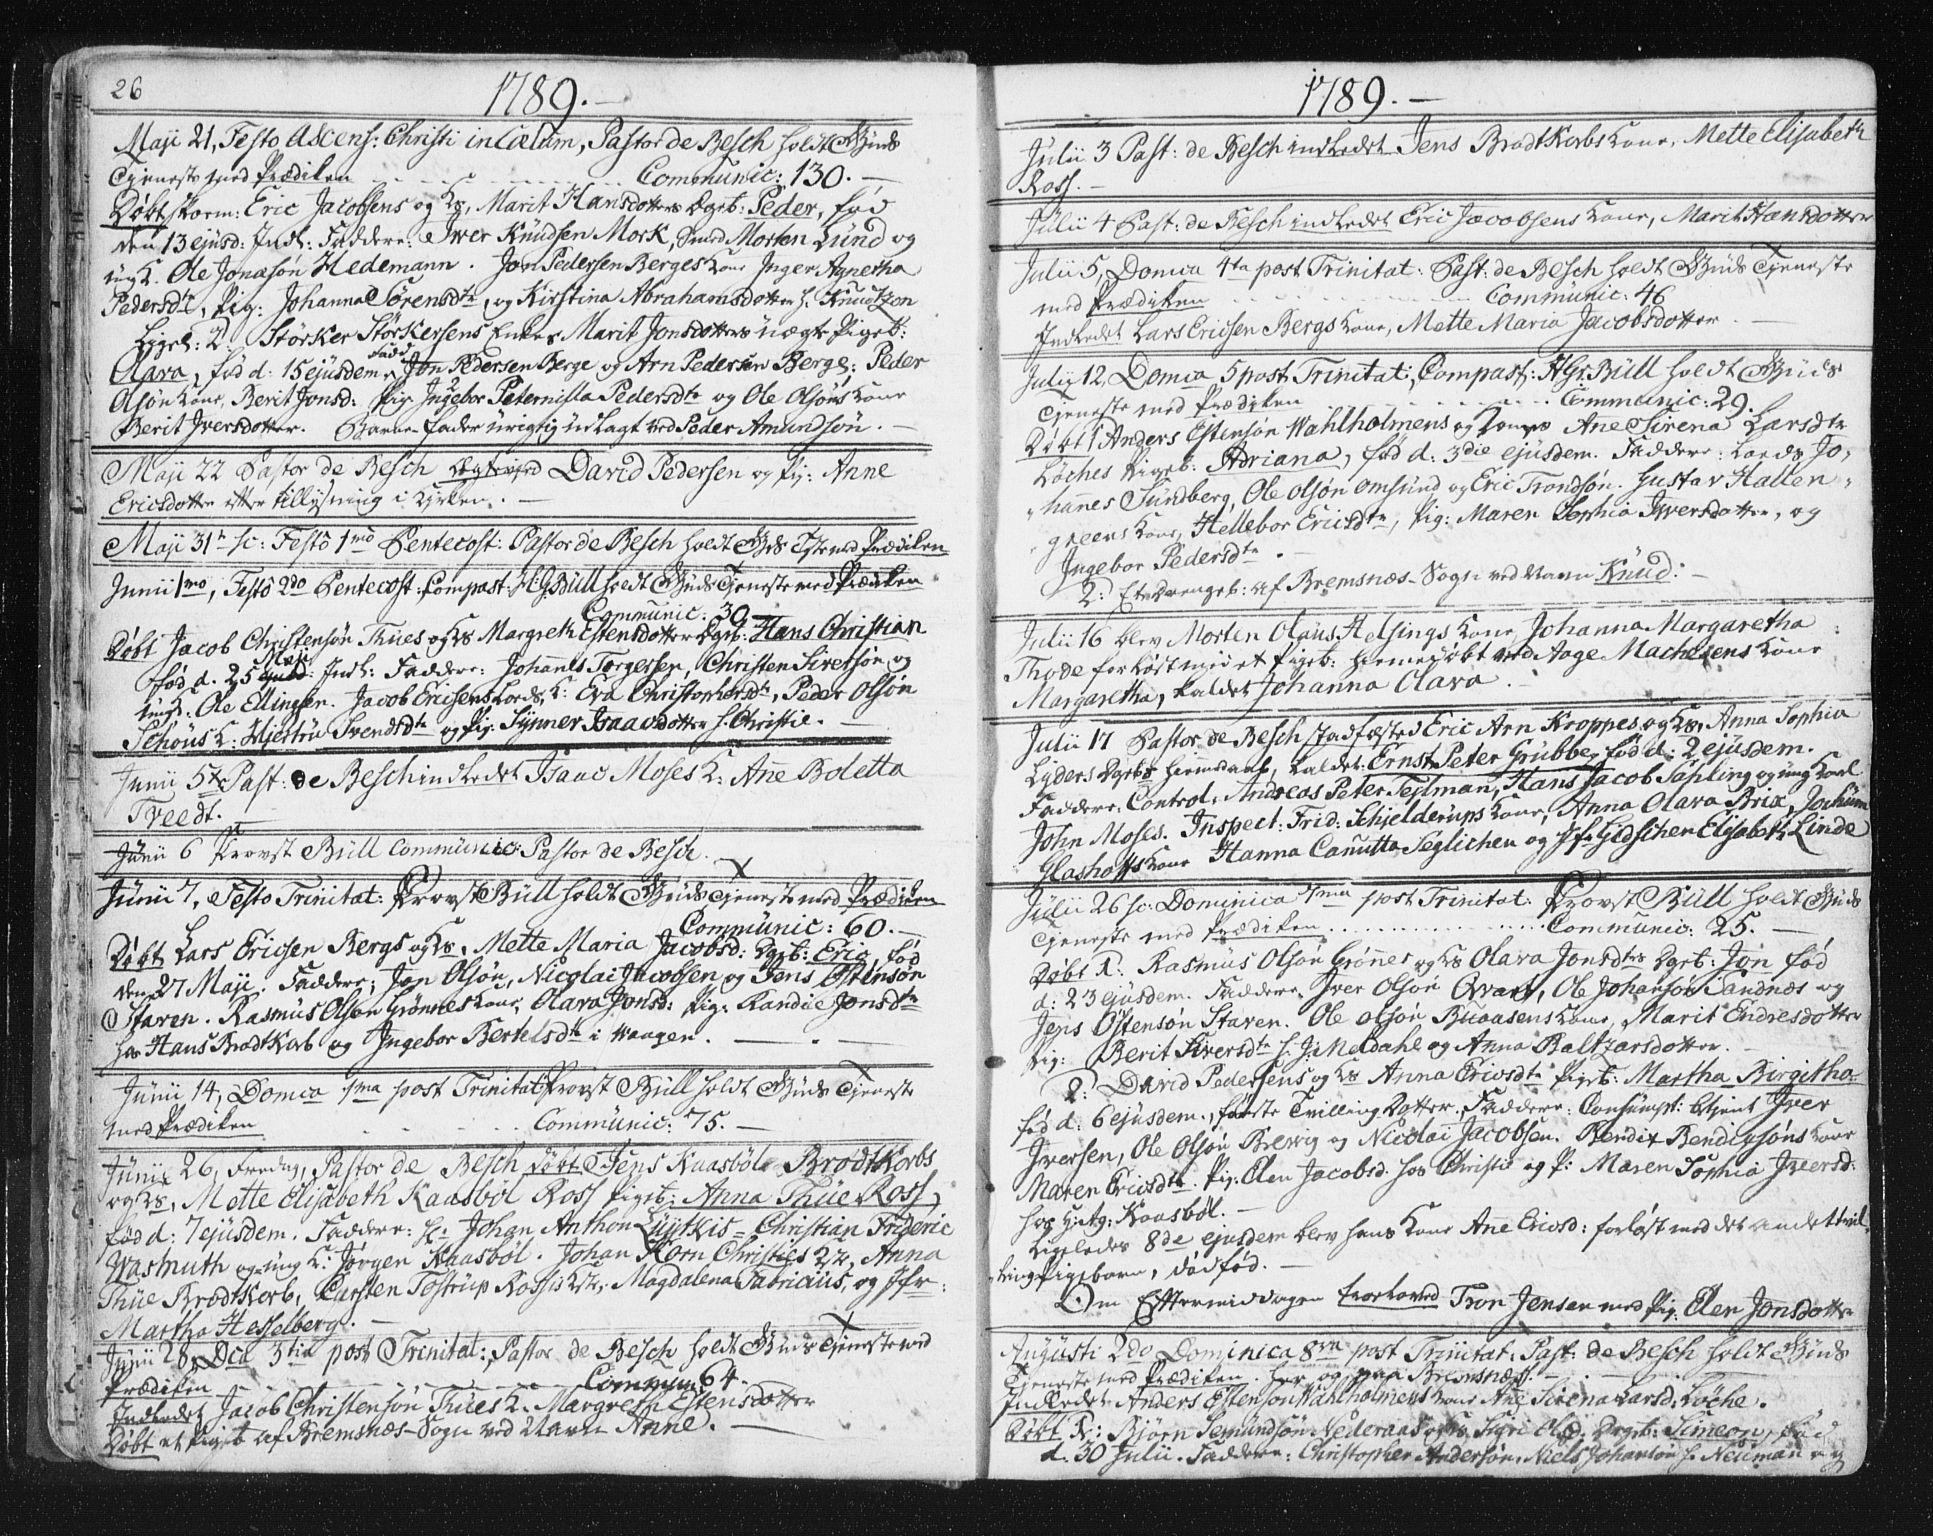 26
1789.—
Maji 21, Festo Ascens: Christi in Cælum, Pastor de Besch holdt Guds
Tjeneste med Prædiken Communic: 130.—
Døbt skoem: Eric Jacobsens og Ks. Marit Hansdotters Dgeb: Peder, fød
den 13 ejusd: Indl: Faddere: Iver Knudsen Mork, Smed Morten Lund og
ungK. Ole Jonasøn Hedemann. Jon Pedersen Berges Kone Inger Agnetha
Pedersdtr, Pig: Johanna Sørensdtr, og Kirstina Abrahamsdotter h. Knudtzon
Ligel: 2. Størker Størkersens Enkes Marit Jonsdotters uægte Pigeb:
Clara, fød d: 15 ejusdem. Fadd: Jon Pedersen Berge og Arn Pedersen Berge; Peder
Olsøn Kone, Berit Jonsd: Pig Ingebor Peternilla Pedersdtr og Ole Olsøns Kone
Berit Iversdotter. Barne-Fader urigtig udlagt ved Peder Amundsøn.—
Maji 22 Pastor de Besch Ægtevied David Pedersen og Pig: Anne
Ericsdotter efter tillysning i Kirken.—
Maji 31te sc: Festo 1mo Pentecost: Pastor de Besch holdt Guds Tjste med Prædiken
Junii 1mo, Festo 2do Pentecost: Compast: H: G: Büll holdt Guds Tjeneste med Prædiken
Communic: 30
Døbt Jacob Christensøn Thues og Ks Margreth Estensdotter Dgeb: Hans Christian
fød d. 25 Maji Indl: Faddere: Johannes Torgersen, Christen Siretsøn og
ungK. Ole Ellingsen. Jacob Ericsens Loeds. K: Eva Christophersdtr, Peder Olsøn
Schøus K: Hjertru Svendsdtr og Pig. Synner Isaacdotter h. Christie.—
Junii 5te Past: de Besch indledet Isaac Moses K: Anne Boletta
Tveedt.—
Junii 6 Provst Büll Communic: Pastor de Besch.
Junii 7, Festo Trinitat: Provst Büll holdt Guds Tjeneste med Prædiken
Communic: 60.—
Døbt Lars Ericsen Bergs og Ks. Mette Maria Jacobsd: Dgeb: Eric, fød
den 27 Maji. Faddere: Jon Olsøn, Nicolai Jacobsen og Jens Østensøn
Staren. Rasmus Olsøn Grønnes Kone, Olara Jonsd: Pig: Randie Jonsdtr
hos Hans Brodtkorb og Ingebor Bertelsdtr i Waagen.—
Junii 14, Domca 1ma post Trinitat: Provst Büll holdt Guds Tjeneste
med Prædiken Communic: 75.—
Junii 26, Fredag, Pastor de Besch døbt Jens Kaasbøl Brodtkorbs
og Ks. Mette Elisabeth Kaasbøl Ross Pigeb: Anna Thüe Ross,
fød d: 7 ejusdem. Faddere: Hr Johan Anthon Lüytkis = Christian Frideric
Wasmuth og ung K: Jørgen Kaasbøl. Johan Korn Christies K:, Anna
Thüe Brodtkorb, Carsten Tostrup Rosses K:, Magdalena Fabricius, og Jfr:
Martha Hesselberg.—
Junii 28, Dca 3tia post Trinitat: Pastor de Besch holdt Guds Tjeneste med
Prædiken Commun: 64.
Indledet Jacob Christensøn Thües K. Margreth Estensdotter
Døbt et Pigeb af Bremsnæs-Sogn ved Navn Anne.—
1789.—
Julii 3 Past: de Besch indledet Jens Brodtkorbs Kone, Mette Elisabeth
Ross.—
Julii 4 Past: de Besch indledet Eric Jacobsens Kone, Marit Hansdotter
Julii 5, Domca 4ta post Trinitat: Past: de Besch holdt Guds Tjeneste
med Prædiken Communic: 46
Indledet Lars Ericsen Bergs Kone, Mette Maria Jacobsdotter.—
Julii 12, Domca 5 post Trinitat: Compast: H: Gr: Büll holdt Guds
Tjeneste med Prædiken Communic: 29.
Døbt 1 Anders Estensøn Wahlholmens og Kones Ane Sirena Larsdtr
Løches Pigeb: Adriana, fød d: 3die ejusdem. Faddere: Loeds Jo-
hannes Sundberg, Ole Olsøn Omsund og Eric Trondsøn. Gustav Hallen-
greens Kone, Hellebor Ericsdtr, Pig: Maren Sophia Iversdotter, og
Ingebor Pedersdtr.—
2: Et Drengeb: af Bremsnæs-Sogn ved Navn Knud.—
Julii 16 blev Morten Olaus Helsings Kone Johanna Margaretha
Thode forløst med et Pigeb: hiemedøbt ved Aage Machesens Kone
Margaretha, kaldet Johanna Clara.
Julii 17 Pastor de Besch stadfæsted Eric Arn Kroppes og Ks. Anna Sophia
Lyders Dgebs hiemdaab, kaldet: Ernst Peter Grubbe, fød d: 2 ejusdem.
Faddere: Control: Andreas Peter Tejlman, Hans Jacob Sahling og ung Karl
John Moses. Inspect: Frid: Schjelderups Kone, Anna Olara Brix, Jochum
Glashoffs Kone Hanna Canutta Seglichen og Jfr Gidschen Elisabeth Linde
Julii 26 sc: Dominica 7ma post Trinitat: Provst Büll holdt Guds
Tjeneste med Prædiken Communic: 25.—
Døbt 1: Rasmus Olsøn Grønnes og Ks Olara Jonsdtrs Dgeb: Jon fød
d: 23 ejusdem. Faddere: Iver Olsøn Qvart, Ole Johansøn Sandnæs og
Jens Østensøn Staren. Ole Olsøn Buaasens Kone, Marit Endresdotter
Pig: Berit Siversdtr h. J. Meldahl og Anna Baltzarsdotter.—
2: David Pedersens og Ks Anna Ericsdtr Pigeb: Martha Birgitha
fød d: 6 ejusdem, første Tvilling Dotter. Faddere: Consumpt: btjent Iver
Iversen, Ole Olsøn Brewig og Nicolai Jacobsen. Bendix Bendixsøns Kone
Maren Ericsdtr. Pig: Elen Jacobsd. hos Christie og P: Maren Sophia Iversd:
hos Kaasbøl.—
Ligeledes 8de ejusdem blev hans Kone Ane Ericsd: forløst med det andet tvil-
lings Pigebarn, dødfød.—
Om Eftermiddagen troloved Tron Jensen med Pig: Elen Jonsdotter
Augusti 2do Dominica 8va post Trinitat: Past: de Besch holdt Guds
Tjeneste med Prædiken her og paa Bremsnæs.—
Indledet Anders Estenson Wahlholmens Kone Ane Sirena Larsd: Løche.
Døbt 1: Biørn Semundsøn Nederaas og Ks. Sigri Olsd: Dgeb: Simeon, fød
d. 30 Julii. Faddere: Christopher Andersøn, Niels Johansøn h. Neuman og